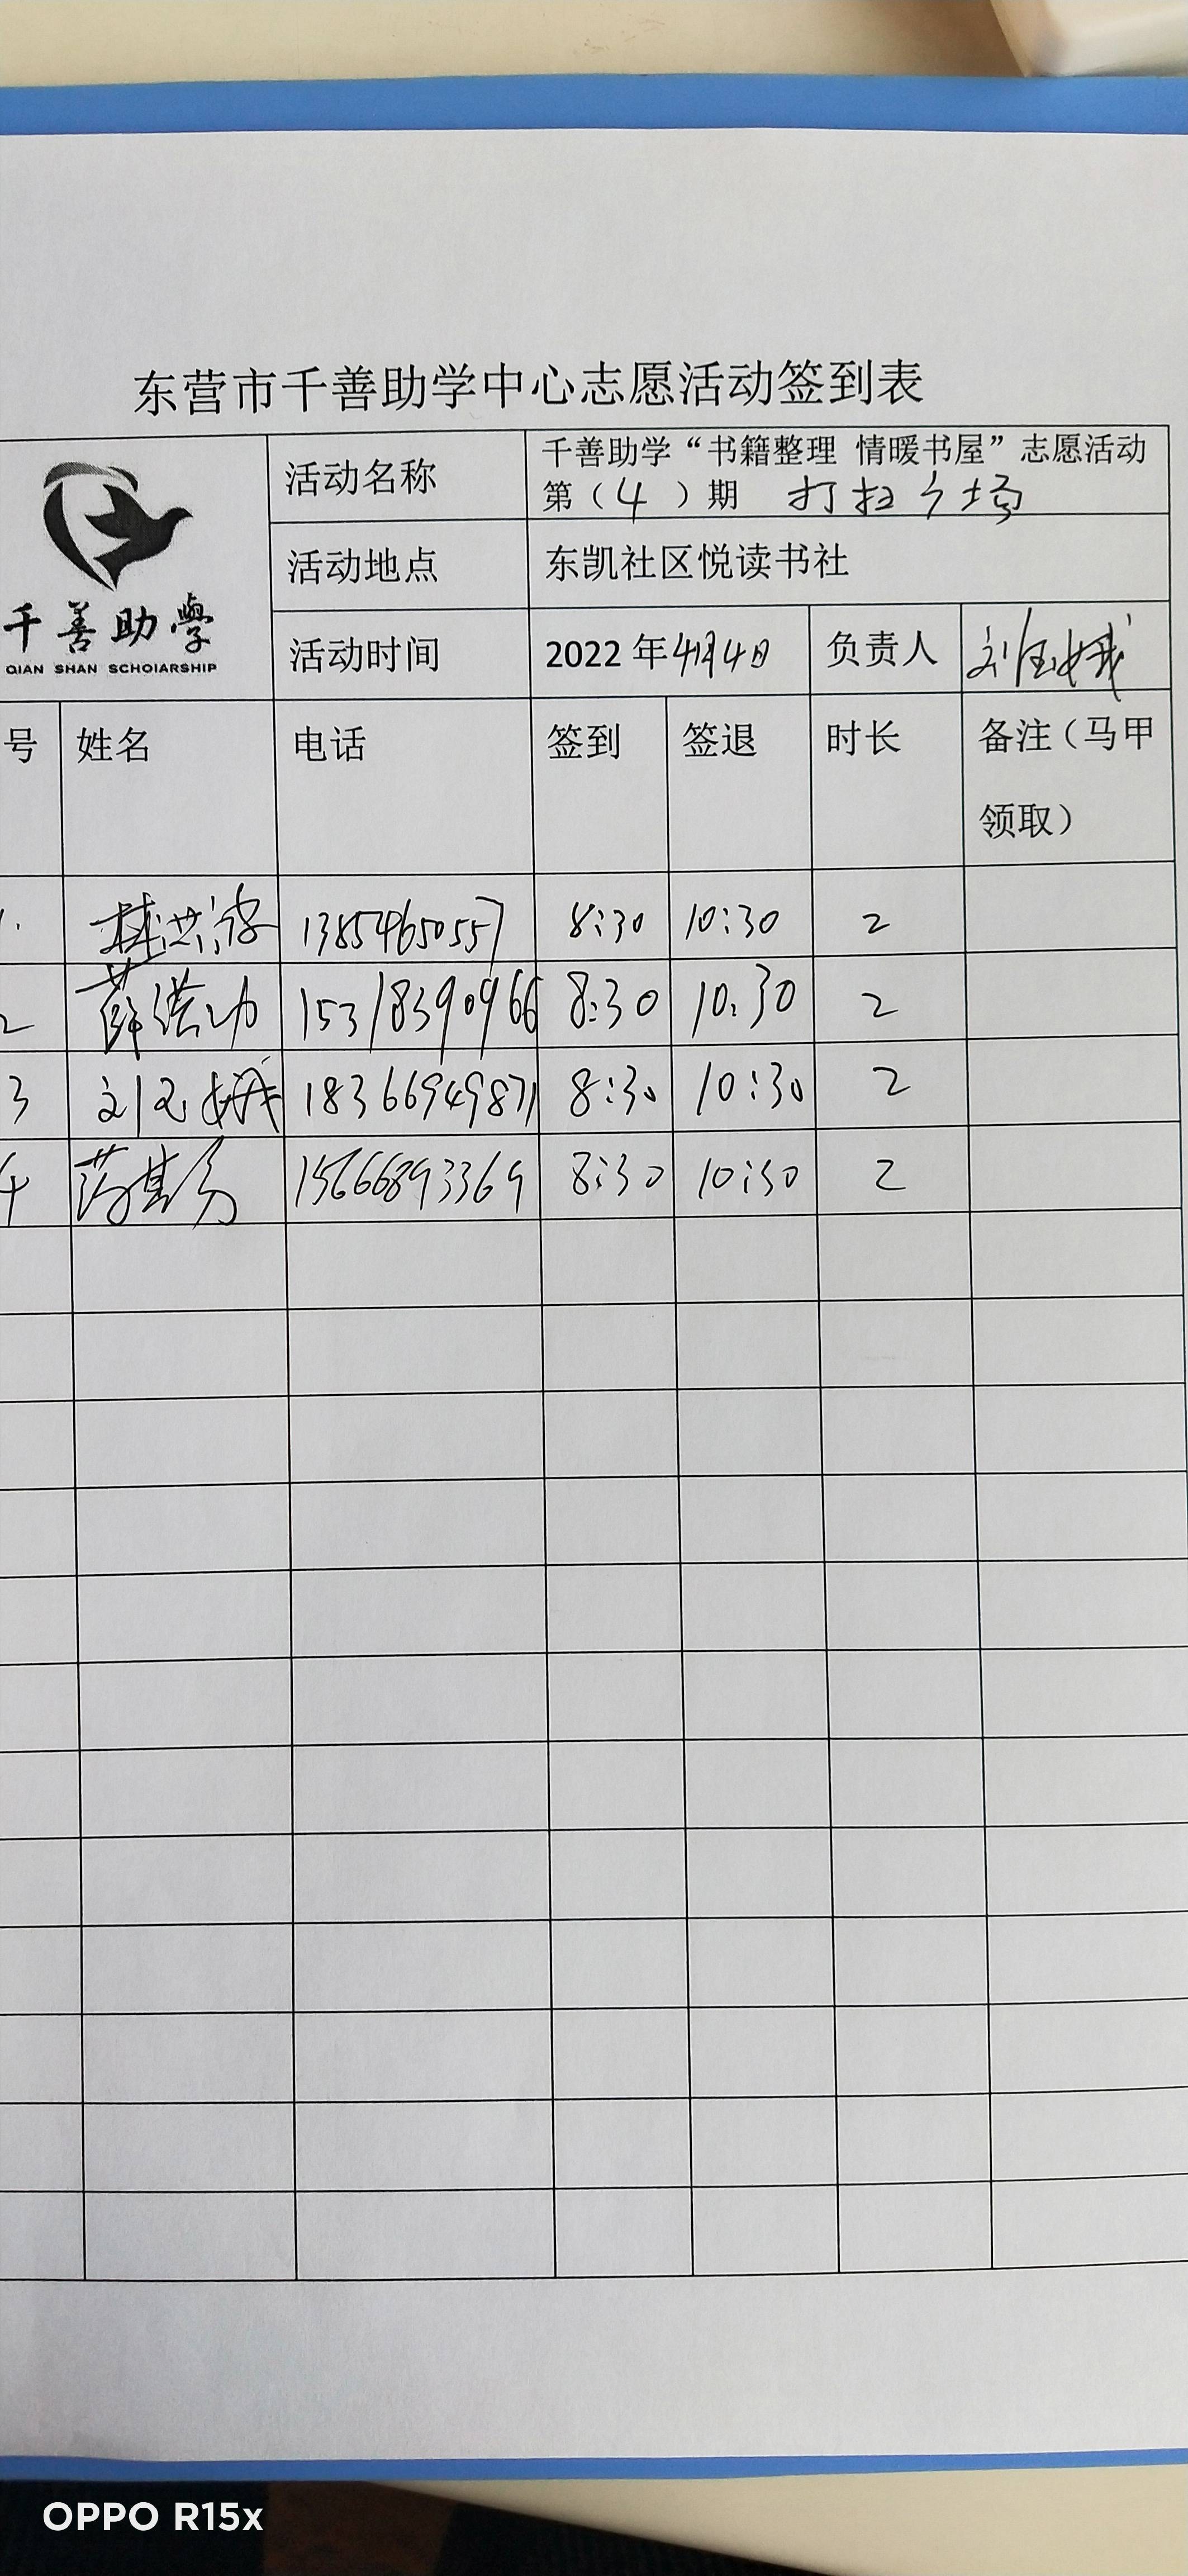 东营市千善助学中心志愿活动签到表
千善助學
QIAN SHAN SCHOlARSHIP
活动名称 千善助学“书籍整理 情暖书屋”志愿活动
第（4）期 打扫广场
活动地点 东凯社区悦读书社
活动时间 2022年4月4日 负责人 刘玉娥
号 姓名 电话 签到 签退 时长 备注（马甲
领取）
1. 13854650557 8:30 10:30 2
2 15318390966 8:30 10:30 2
3 刘玉娥 18366949871 8:30 10:30 2
4 15666893369 8:30 10:30 2
OPPO R15x